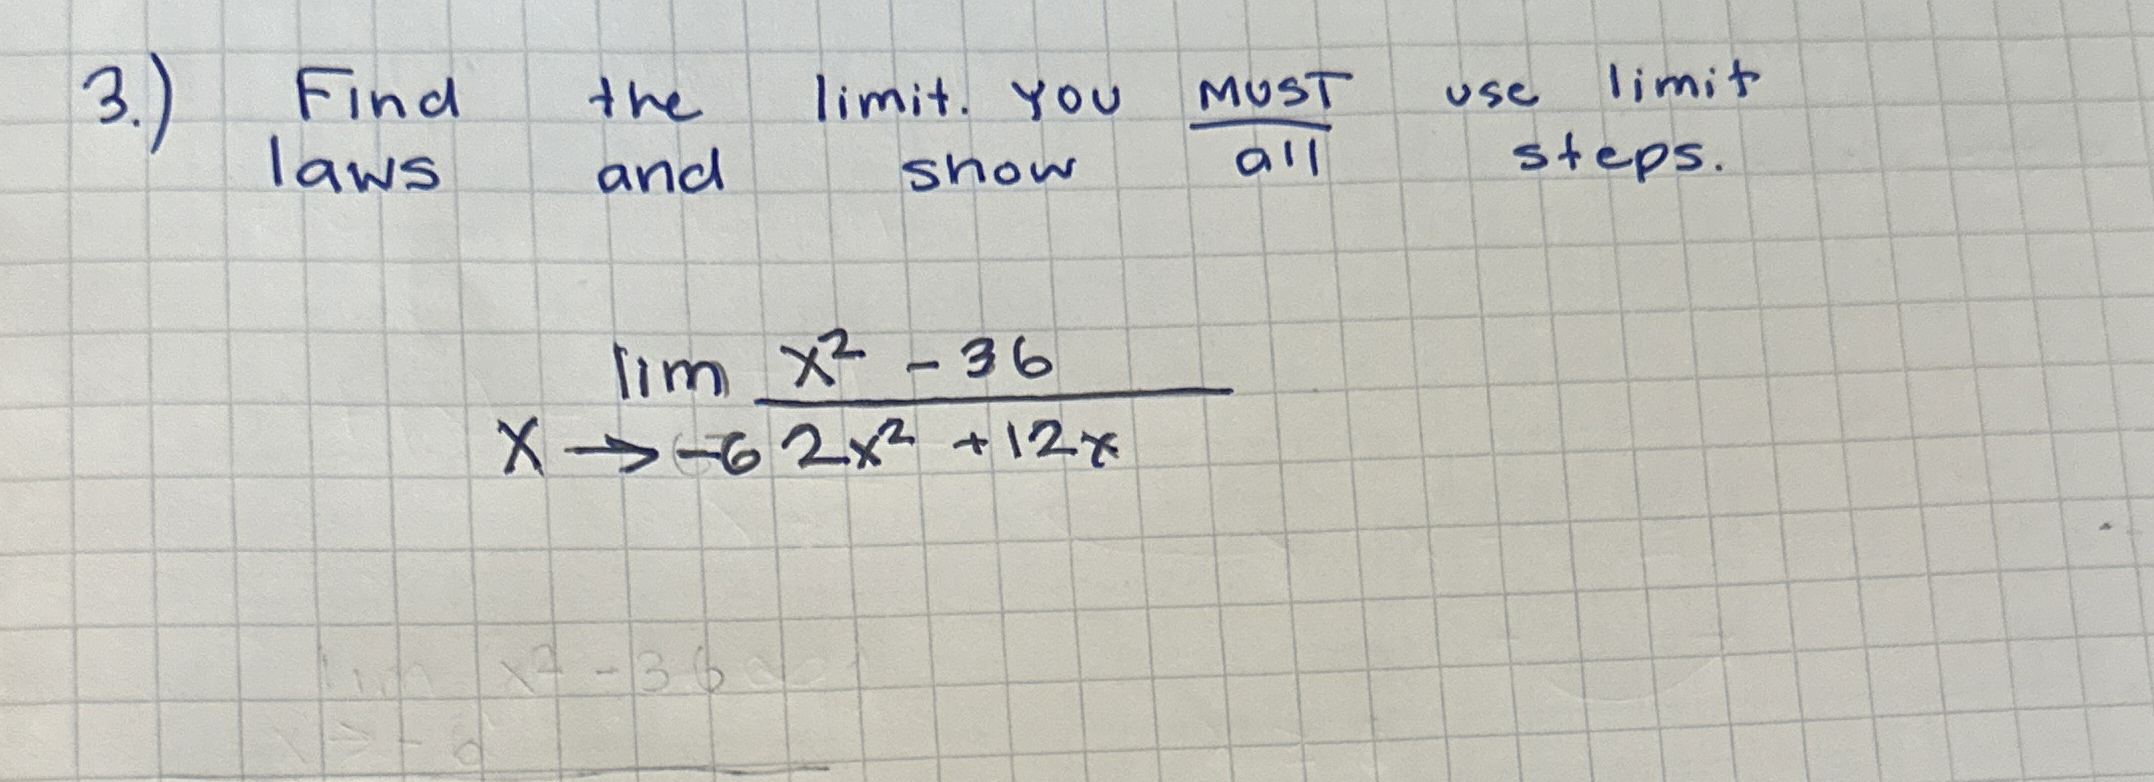 3.) Find the limit. You MUST use limit
laws and show all steps.
lim x² - 36
x → -6 2x² + 12x
lim x² - 36
x → -6